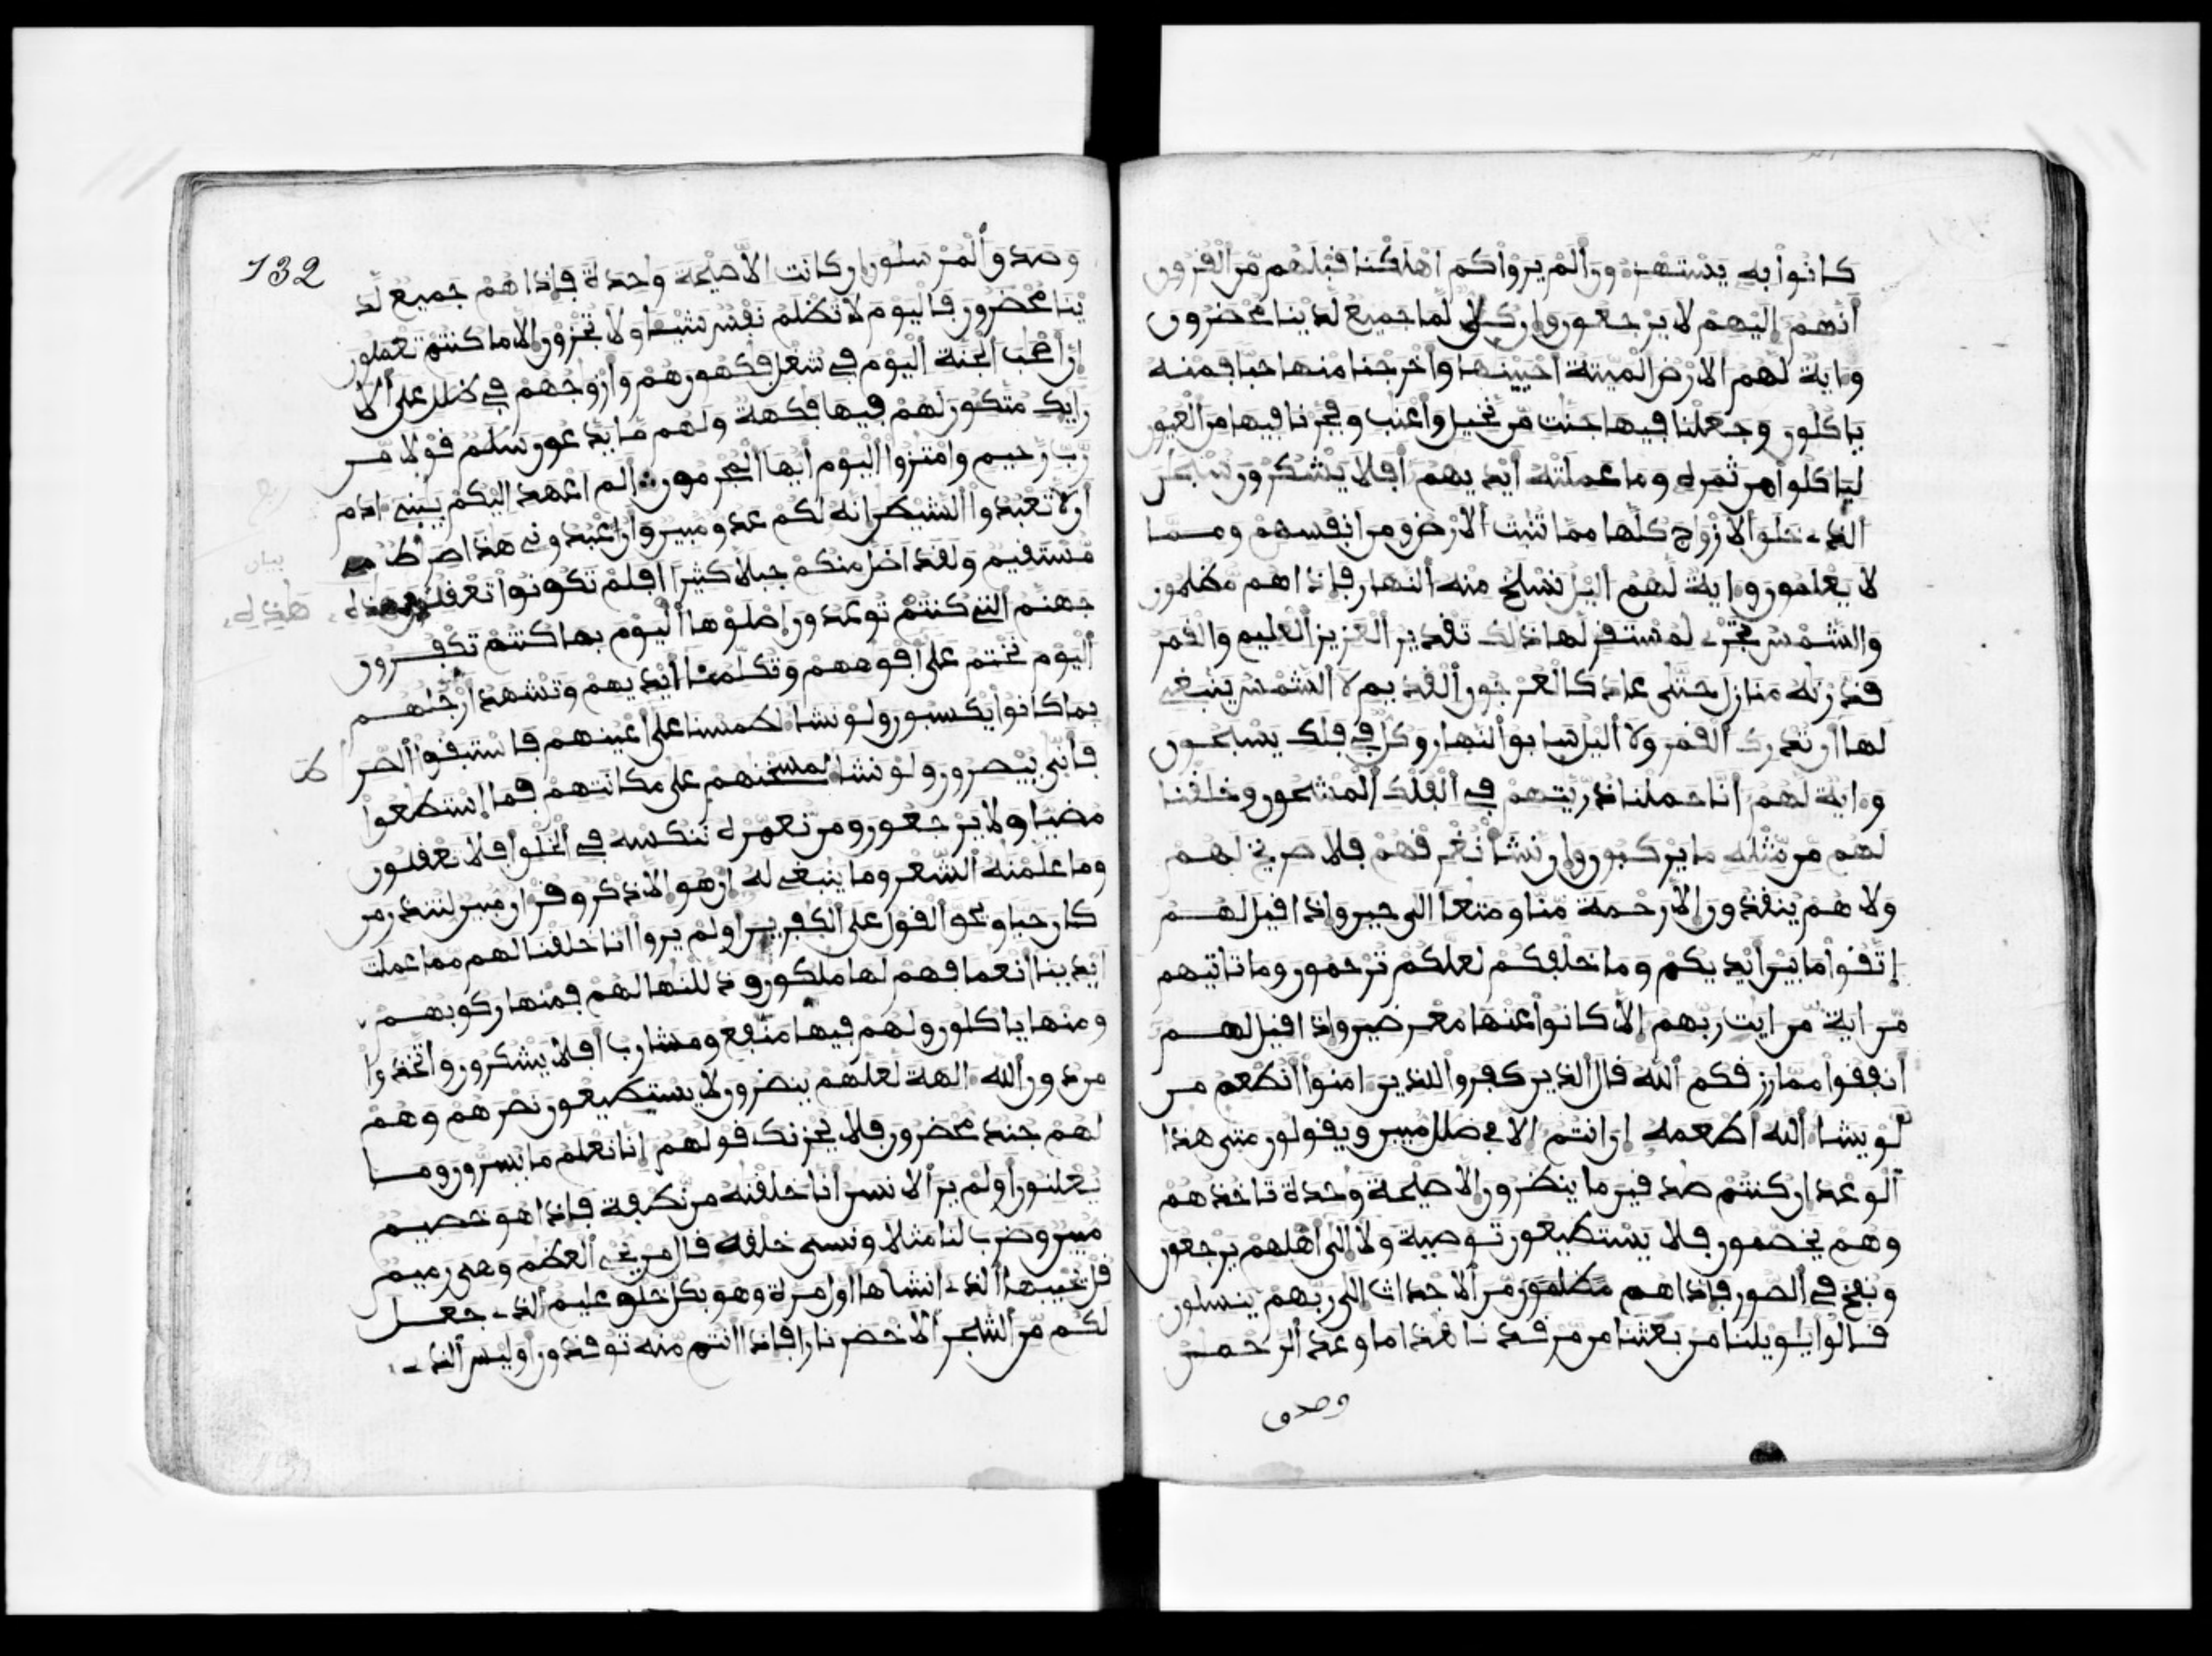 كانوا به يستهزءون ألم يروا كم اهلكنا قبلهم من القرون
أنهم إليهم لا يرجعون وإن كل لما جميع لدينا محضرون
وءاية لهم الارض الميتة احيينها وأخرجنا منها حبا فمنه
ياكلون وجعلنا فيها جنت من نخيل وأعنب وفجرنا فيها من العيون
لياكلوا من ثمره وما عملته أيديهم أفلا يشكرون سبحن
الذے خلق الازواج كلها مما تنبت الارض ومن انفسهم ومما
لا يعلمون وءاية لهم اليل نسلخ منه النهار فإذا هم مظلمون
والشمس تجرے لمستقر لها ذلك تقدير العزيز العليم والقمر
قدرنه منازل حتى عاد كالعرجون القديم لا الشمس ينبغي
لها أن تدرك القمر ولا اليل سابق النهار وكل في فلك يسبحون
وءاية لهم انا حملنا ذريتهم في الفلك المشحون وخلقنا
لهم من مثله ما يركبون وإن نشا نغرقهم فلا صريخ لهم
ولا هم ينقذون إلا رحمة منا ومتعا الى حين وإذا قيل لهم
إتقوا ما بين أيديكم وما خلفكم لعلكم ترحمون وما تاتيهم
من اية من ايت ربهم إلا كانوا عنها معرضين وإذا قيل لهم
أنفقوا مما رزقكم الله قال الذين كفروا للذين ءامنوا أنطعم من
لو يشا الله أطعمه إن انتم إلا في ضلل مبين ويقولون متى هذا
الوعد إن كنتم صدقين ما ينظرون إلا صيحة وحدة تاخذهم
وهم يخصمون فلا يستطيعون توصية ولا إلى أهلهم يرجعون
ونفخ في الصور فإذا هم مظلمون من الاجداث الى ربهم ينسلون
قالوا يويلنا من بعثنا من مرقدنا هذا ما وعد الرحمن
وصدق
132
وصدق المرسلون إن كانت الا صيحة واحدة فإذا هم جميع لد
ينا محضرون فاليوم لا تظلم نفس شيئا ولا تجزون إلا ما كنتم تعملون
إن أصحب الجنة اليوم في شغل فكهون هم وأزوجهم في ظلل على الا
رايك متكون لهم فيها فكهة ولهم ما يدعون سلم قولا من
رب رحيم وامتزوا اليوم أيها المجرمون ألم اعهد إليكم يبني ءادم
أن لا تعبدوا الشيطن إنه لكم عدو مبين وأن اعبدوني هذا صرط
مستقيم ولقد اضل منكم جبلا كثيرا افلم تكونوا تعقلون هذه
بيان
هذه
جهنم التي كنتم توعدون إصلوها اليوم بما كنتم تكفرون
أليوم نختم على أفوههم وتكلمنا أيديهم وتشهد أرجلهم
بما كانوا يكسبون ولو نشا لطمسنا على أعينهم فاستبقوا الصر
ط
فأنى يبصرون ولو نشا لمسخنهم على مكانتهم فما استطعوا
مضيا ولا يرجعون ومن نعمره ننكسه في الخلق أفلا تعقلون
وما علمنه الشعر وما ينبغي له إن هو إلا ذكر وقرءان مبين لتنذر من
كان حيا ويحق القول على الكفرين أولم يروا انا خلقنا لهم مما عملت
أيدينا أنعما فهم لها ملكون وذللنها لهم فمنها ركوبهم
ومنها ياكلون ولهم فيها منفع ومشارب أفلا يشكرون واتخذوا
من دون الله ءالهة لعلهم ينصرون لا يستطيعون نصرهم وهم
لهم جند محضرون فلا يحزنك قولهم إنا نعلم ما يسرون وما
يعلنون أولم ير الانسن أنا خلقنه من نطفة فإذا هو خصيم
مبين وضرب لنا مثلا ونسي خلقه قال من يحي العظم وهي رميم
قل يحييها الذے انشاها أول مرة وهو بكل خلق عليم الذے جعل
لكم من الشجر الاخضر نارا فإذا انتم منه توقدون أوليس الذے